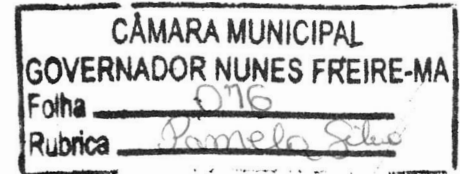 CÂMARA MUNICIPAL
GOVERNADOR NUNES FREIRE-MA
Folha 076
Rubrica Pamela Silva